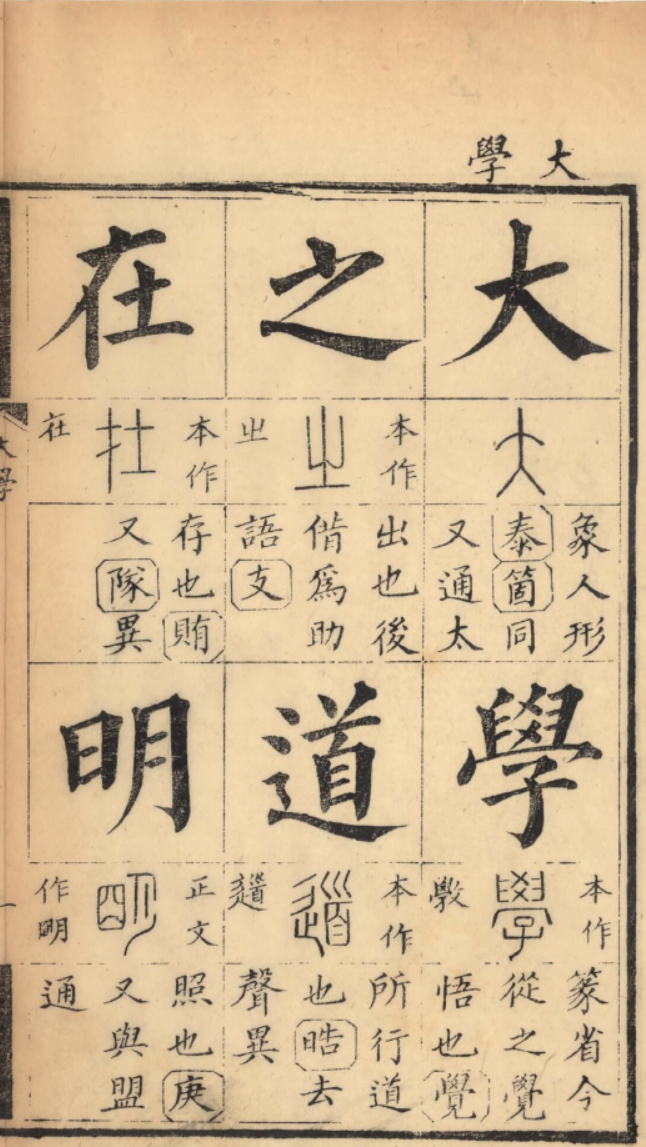 大學
大
大
象人形
泰箇同
又通太
學
本作
學
斆
篆省今
從之覺
悟也覺
之
本作
㞢
出也後
借爲助
語支
道
本作
道
所行道
也晧去
聲異
在
本作
在
在
存也賄
又隊異
明
正文
明
作明
照也庚
又與盟
通
大學
一